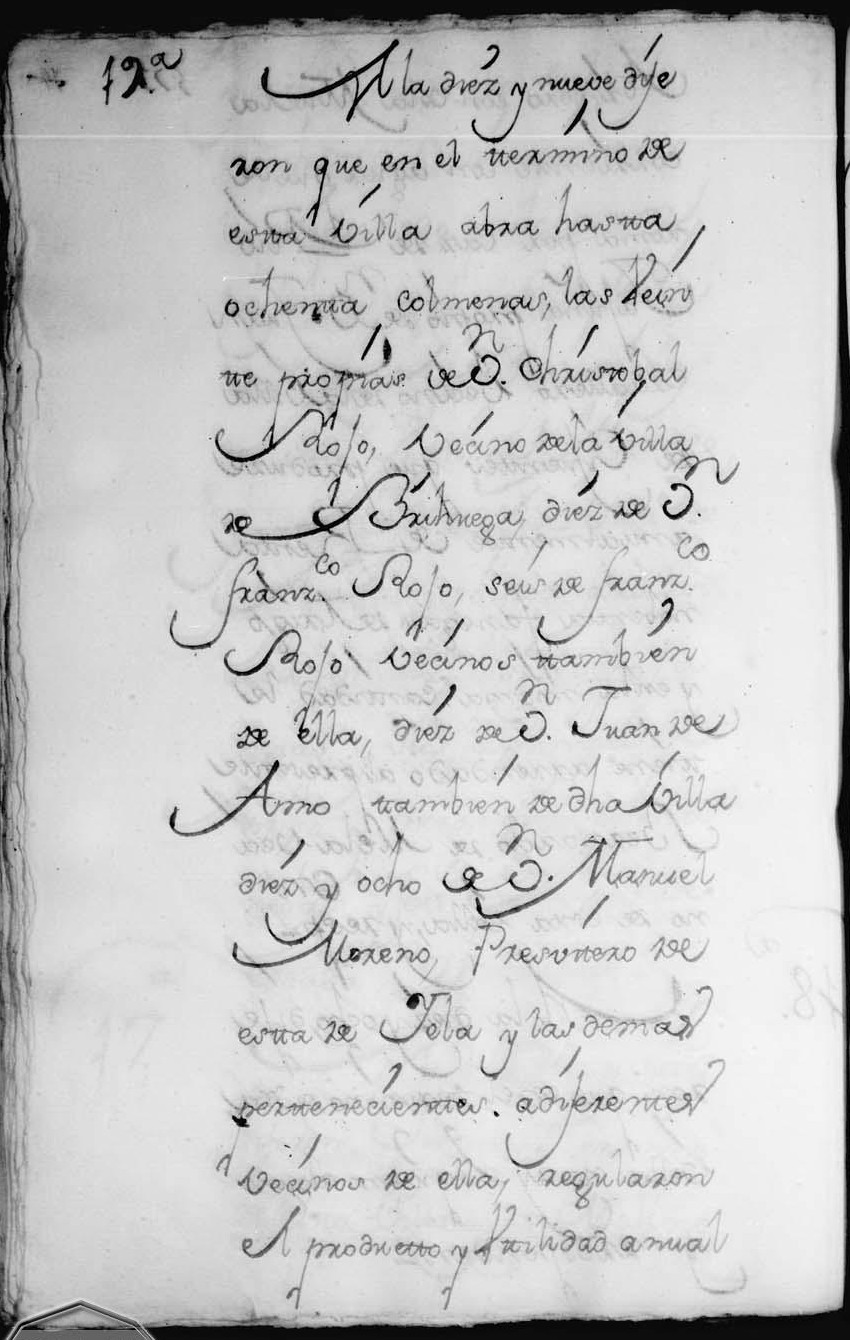 19.ª
A la diéz y nueve dije
ron que en el ttermino de
estta Villa abra hastta
ochentta colmenas, las Vein
tte propias de D.n Christobal
Rojo, Vecino de la Villa
de Brihuega, diéz de D.n
franz.co Rojo, seis de franz.co
Rojo Vecinos ttambien
de ella, diéz de D.n Juan de
Amo ttambien de dha Villa
diéz y ocho de D.n Manuel
Moreno, Presvittero de
estta de Yela y las demas
perttenecienttes. a diferentes
Vecinos de ella, regularon
el productto y Vttilidad anual